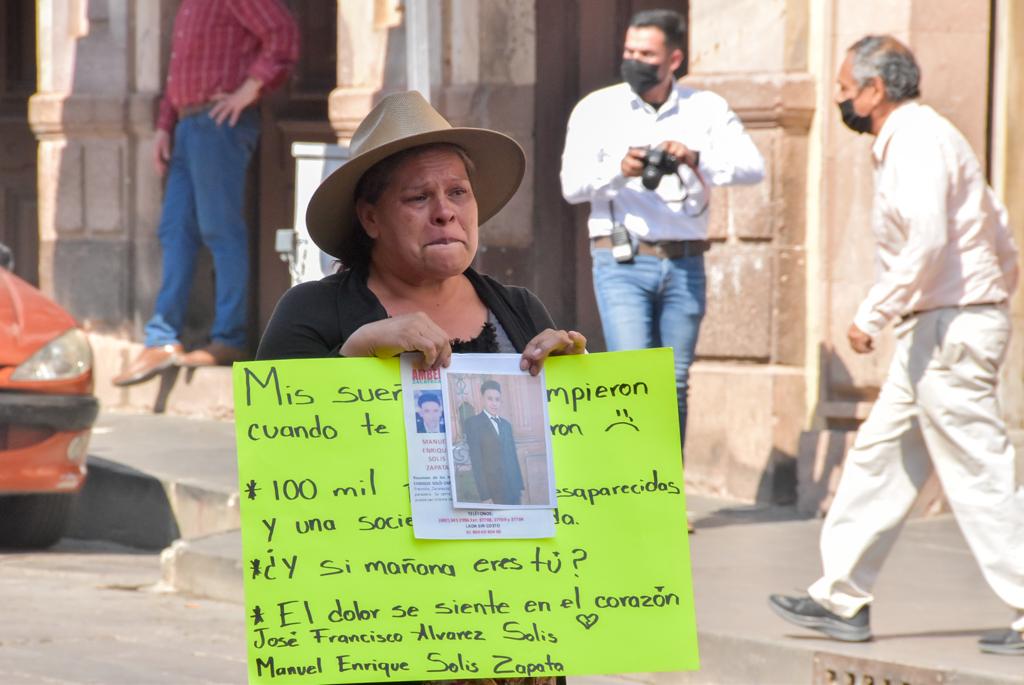 Mis mpieron
cuando te ron
* 100 mil esaparecidas
y una
*¿Y si mañana eres tú?
* El dolor se siente en el corazón
José Francisco Alvarez Solis
Manuel Enrique Solis Zapata
ZACATECAS
MANUEL
ENRIQUE
SOLIS
ZAPATA
TELÉFONOS: